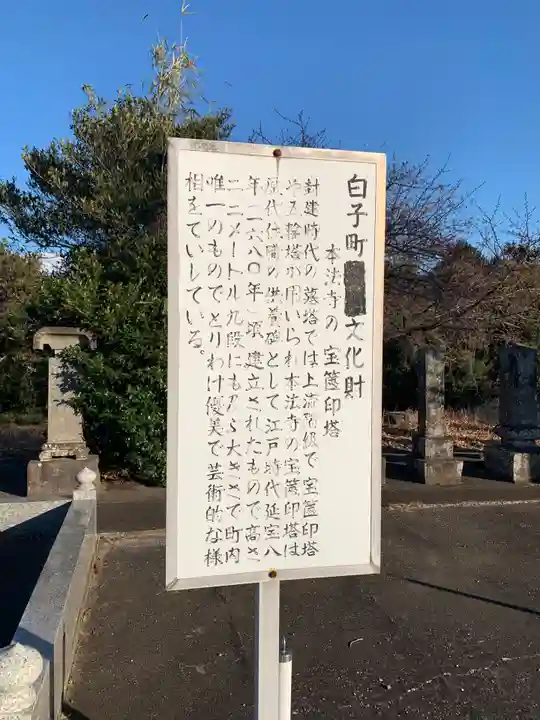 白子町文化財
本法寺の 宝篋印塔
封建時代の墓塔では上流階級で宝篋印塔
や五輪塔が用いられ本法寺の宝篋印塔は
歴代住職の供養碑として江戸時代延宝八
年(一六八〇年)頃建立されたもので高さ
二.二メートル九段にも及ぶ大きさで町内
唯一のものでとりわけ優美で芸術的な様
相をていしている。